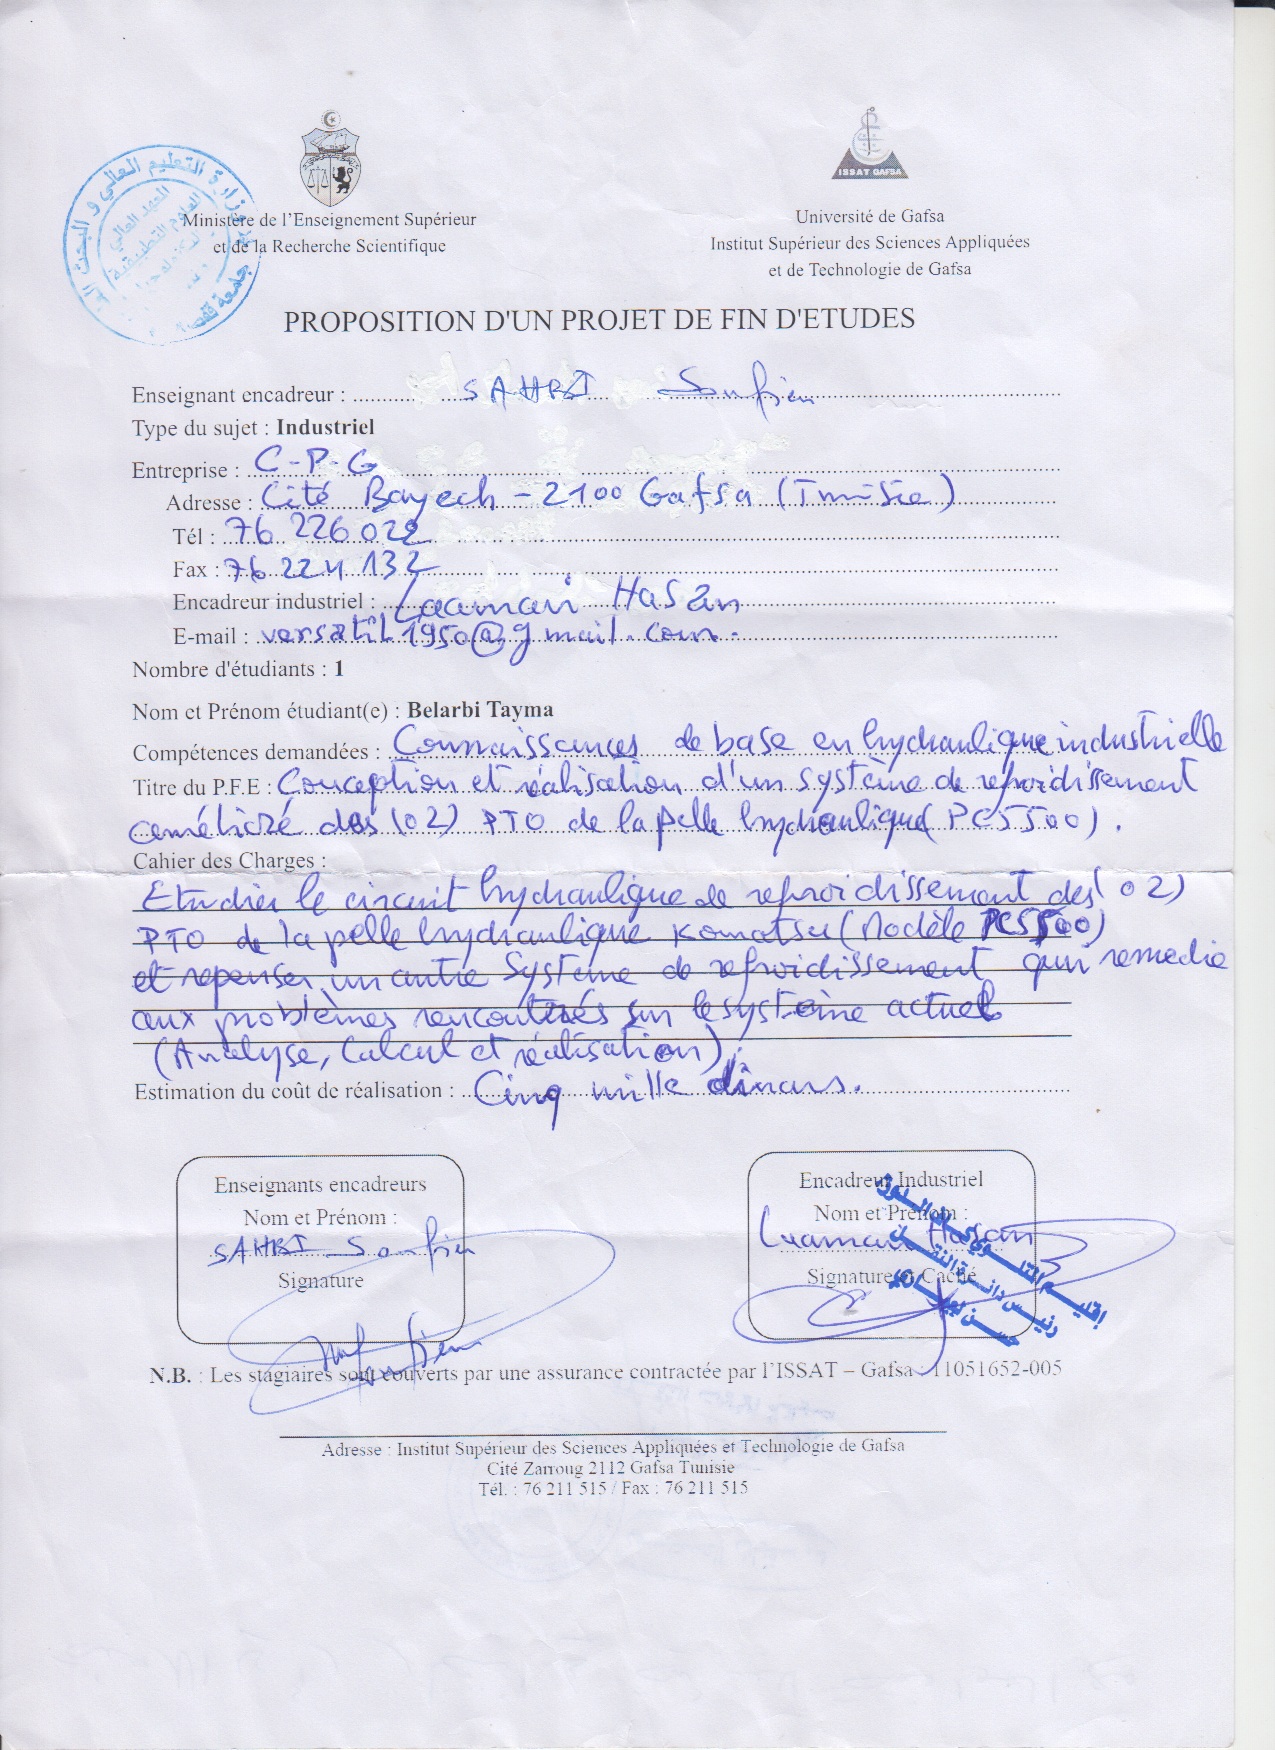 وزارة التعليم العالي و البحث
المعهد العالي
للعلوم التطبيقية
جامعة قفصة
ISSAT GAFSA
Ministère de l'Enseignement Supérieur
et de la Recherche Scientifique
Université de Gafsa
Institut Supérieur des Sciences Appliquées
et de Technologie de Gafsa
PROPOSITION D'UN PROJET DE FIN D'ETUDES
Enseignant encadreur : SAHBI Soufien
Type du sujet : Industriel
Entreprise : C-P-G
Adresse : Cité Bayech - 2100 Gafsa (Tunisie)
Tél : 76 226 022
Fax : 76 224 132
Encadreur industriel : Laamari Hasan
E-mail : versatil1950@gmail.com.
Nombre d'étudiants : 1
Nom et Prénom étudiant(e) : Belarbi Tayma
Compétences demandées : Connaissances de base en hydraulique industrielle
Titre du P.F.E : Conception et réalisation d'un système de refroidissement
amélioré des (02) PTO de la pelle hydraulique (PC5500).
Cahier des Charges :
Etudier le circuit hydraulique de refroidissement des (02)
PTO de la pelle hydraulique Komatsu (Modèle PC5500)
et repenser un autre Système de refroidissement qui remedie
aux problèmes rencontrés sur le système actuel
(Analyse, Calcul et réalisation).
Estimation du coût de réalisation : Cinq mille dinars.
Enseignants encadreurs
Nom et Prénom :
SAHBI Soufien
Signature
Encadreur Industriel
Nom et Prénom :
Laamari Hasan
Signature et Caché
رئيس دائرة
حسن
N.B. : Les stagiaires sont couverts par une assurance contractée par l'ISSAT – Gafsa : 11051652-005
Adresse : Institut Supérieur des Sciences Appliquées et Technologie de Gafsa
Cité Zarroug 2112 Gafsa Tunisie
Tél. : 76 211 515 / Fax : 76 211 515